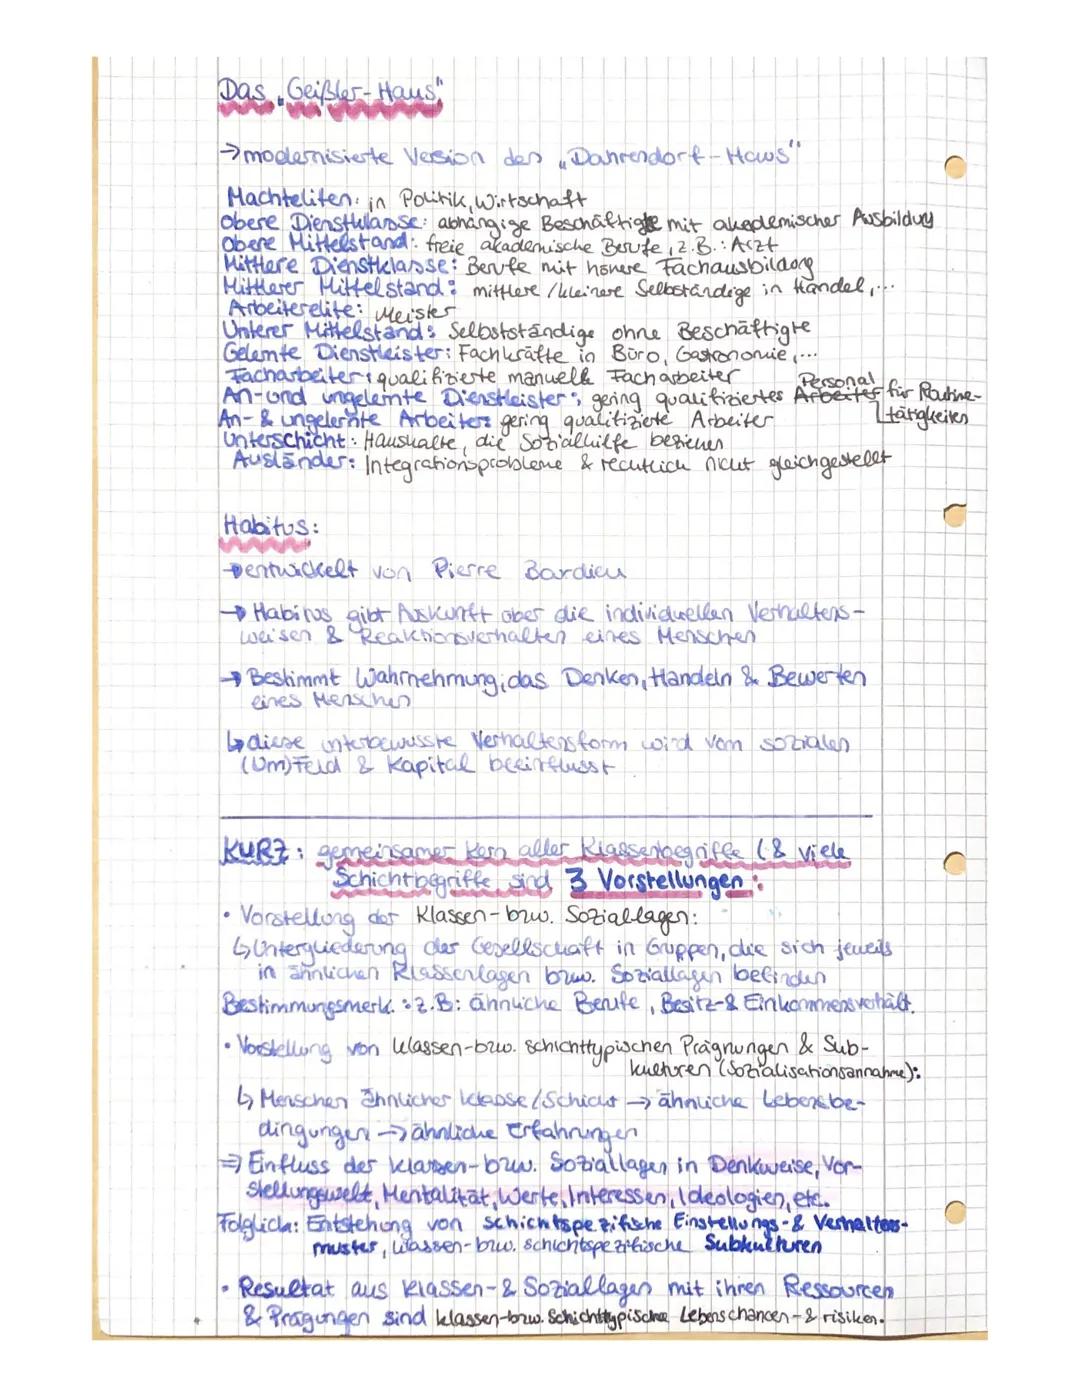 Das „Geißler-Haus"
→ modernisierte Version des „Dahrendorf-Haus"
Machteliten: in Politik, Wirtschaft
Obere Dienstklasse: abhängige Beschäftigte mit akademischer Ausbildung
Obere Mittelstand: freie akademische Berufe, z.B.: Arzt
Mittlere Dienstklasse: Berufe mit höhere Fachausbildung
Mittlerer Mittelstand: mittlere/kleinere Selbständige in Handel,...
Arbeiterelite: Meister
Unterer Mittelstand: Selbstständige ohne Beschäftigte
Gelernte Dienstleister: Fachkräfte in Büro, Gastronomie,...
Facharbeiter: qualifizierte manuelle Facharbeiter
An- und ungelernte Dienstleister: gering qualifiziertes Arbeiter Personal für Routine-
tätigkeiten
An- & ungelernte Arbeiter: gering qualifizierte Arbeiter
Unterschicht: Haushalte, die Sozialhilfe beziehen
Ausländer: Integrationsprobleme & rechtlich nicht gleichgestellt
Habitus:
→ entwickelt von Pierre Bardieu
→ Habitus gibt Auskunft über die individuellen Verhaltens-
weisen & Reaktionsverhalten eines Menschen
→ Bestimmt Wahrnehmung, das Denken, Handeln & Bewerten
eines Menschen
↳ diese unterbewusste Verhaltensform wird vom sozialen
(Um)Feld & Kapital beeinflusst
KURZ: gemeinsamer Kern aller Klassenbegriffe (& viele
Schichtbegriffe sind 3 Vorstellungen:
• Vorstellung der Klassen- bzw. Soziallagen:
↳ Untergliederung der Gesellschaft in Gruppen, die sich jeweils
in ähnlichen Klassenlagen bzw. Soziallagen befinden
Bestimmungsmerk.: z.B: ähnliche Berufe, Besitz- & Einkommensverhält.
• Vorstellung von klassen- bzw. schichttypischen Prägnungen & Sub-
kulturen (Sozialisationsannahme):
↳ Menschen ähnlicher Klasse/Schicht → ähnliche Lebensbe-
dingungen → ähnliche Erfahrungen
⇒ Einfluss der Klassen- bzw. Soziallagen in Denkweise, Vor-
stellungswelt, Mentalität, Werte, Interessen, Ideologien, etc.
Folglich: Entstehung von schichtspezifische Einstellungs- & Verhaltens-
muster, klassen- bzw. schichtspezifische Subkulturen
• Resultat aus Klassen- & Soziallagen mit ihren Ressourcen
& Prägungen sind klassen- bzw. schichttypische Lebenschancen- & risiken.